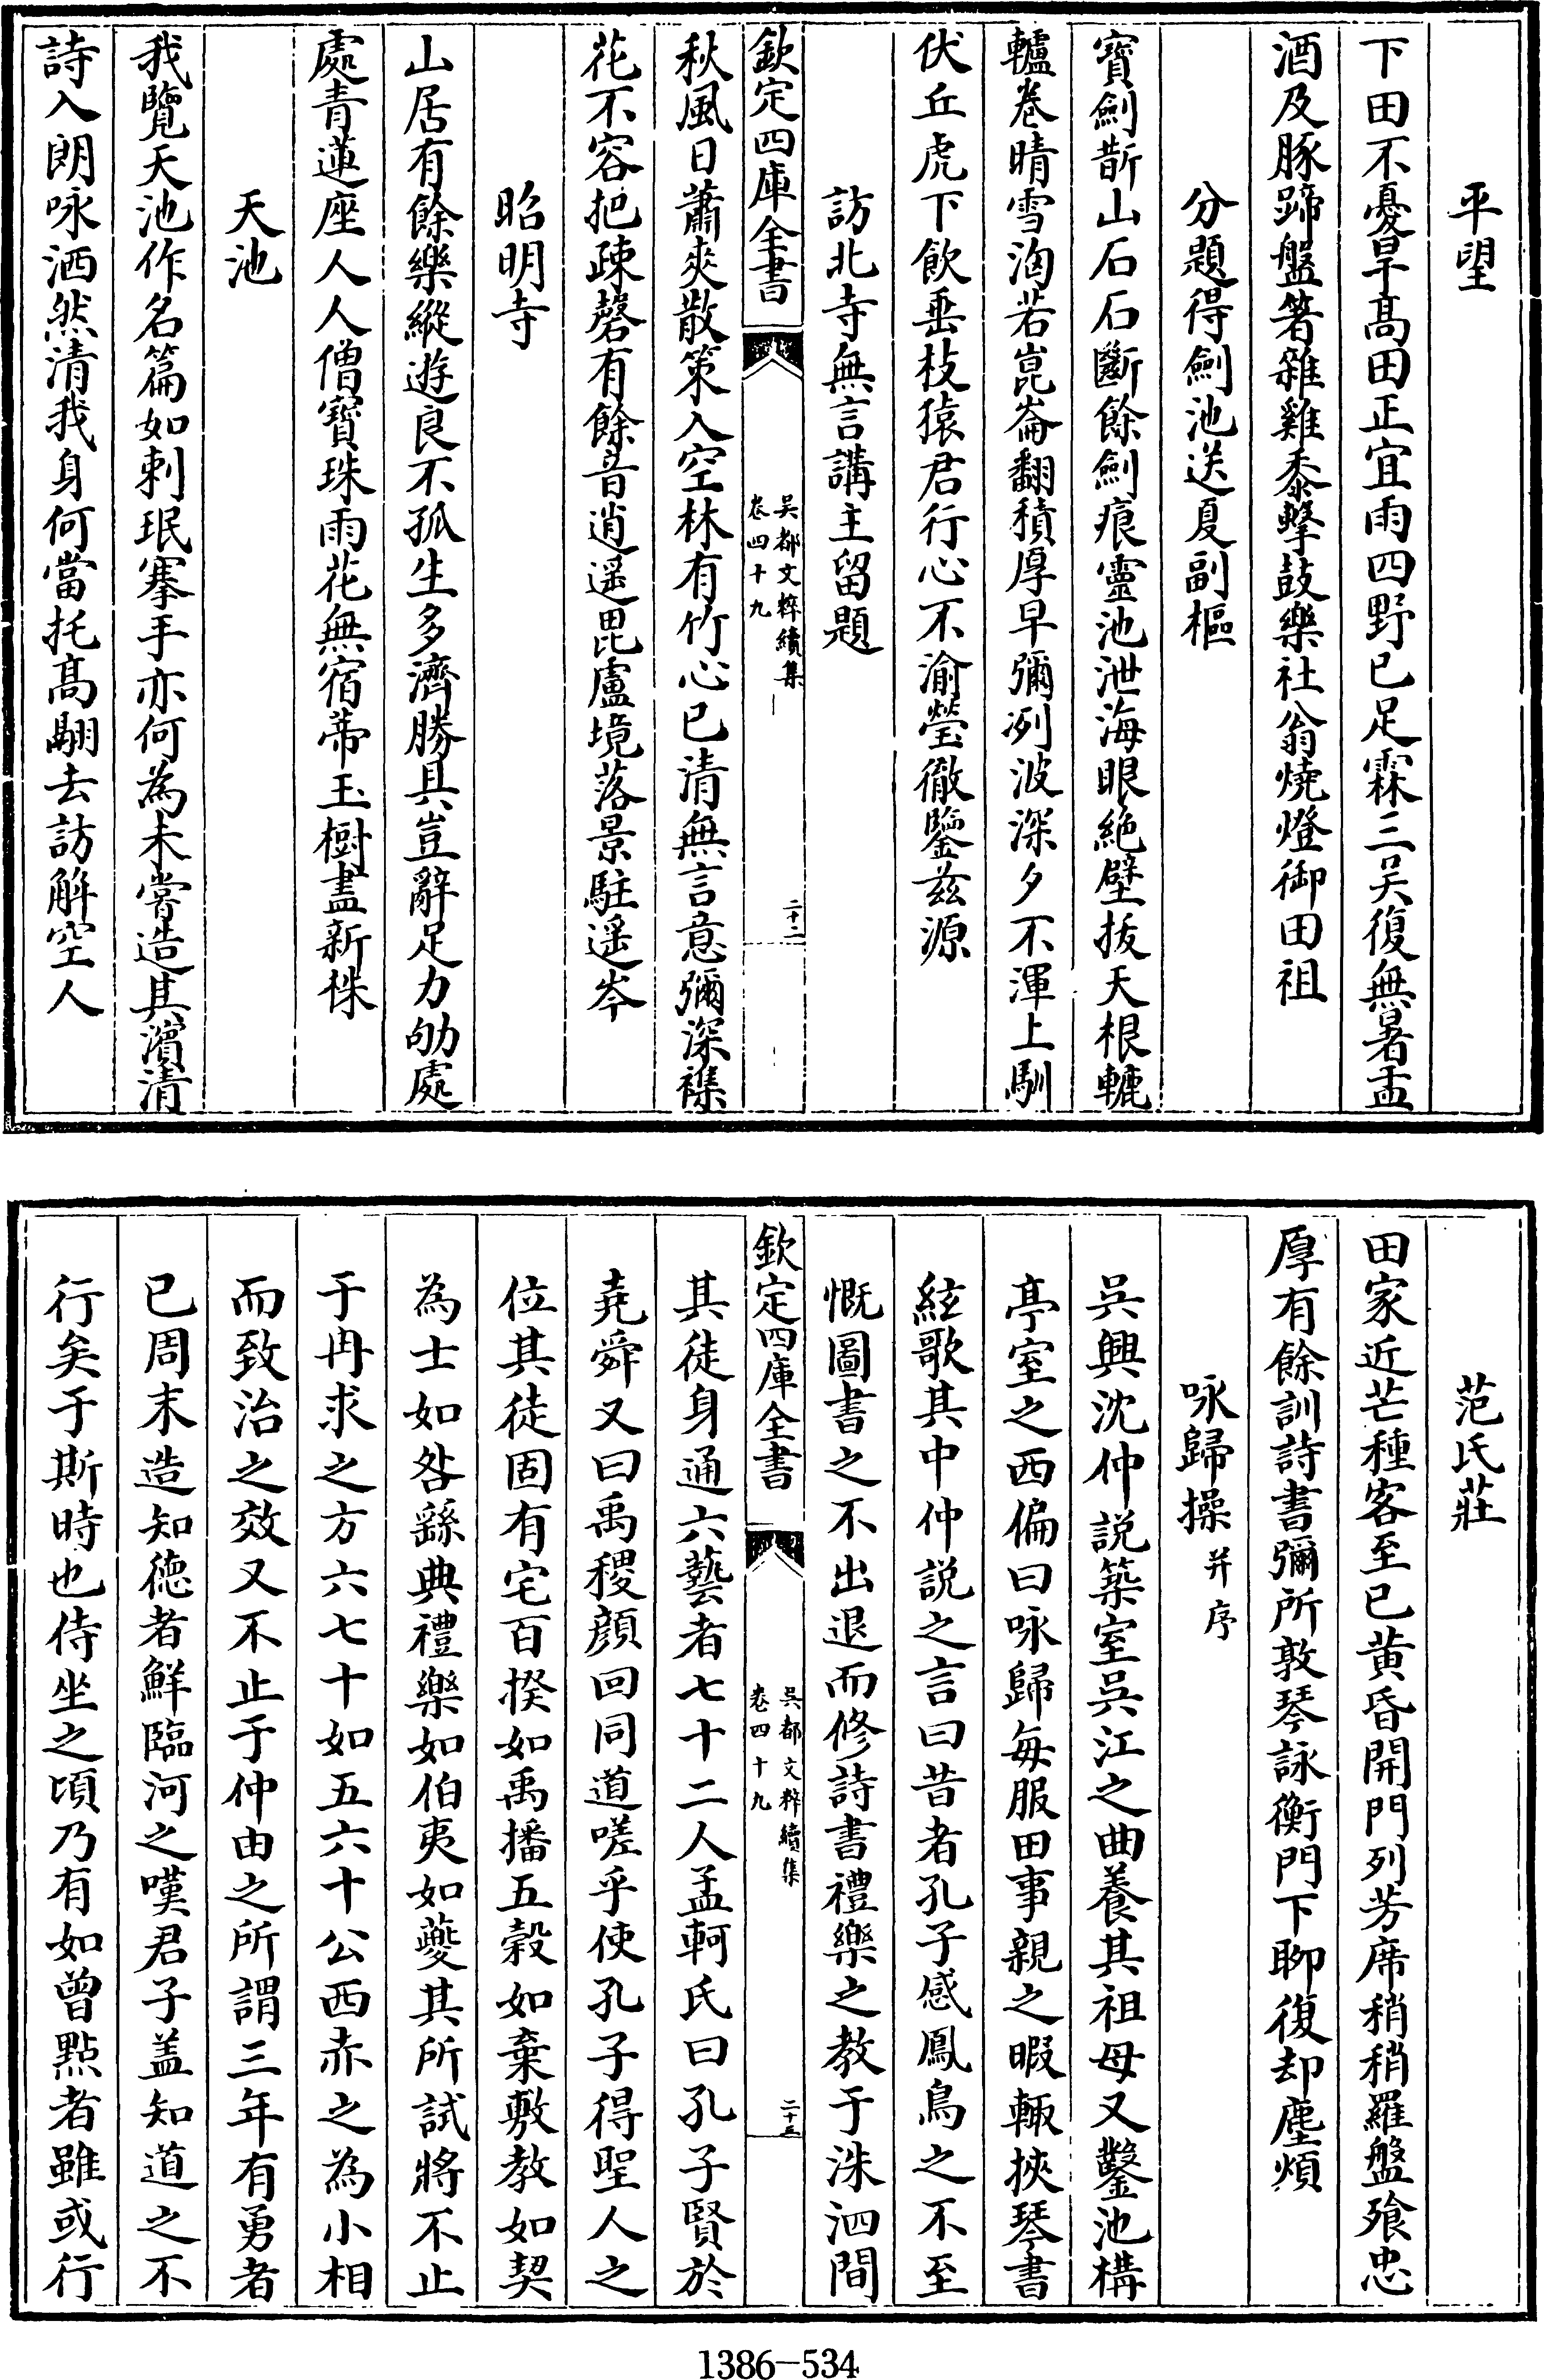 平望
下田不憂旱髙田正宜雨四野已足霖三吴復無暑盂
酒及豚蹄盤箸雜雞黍擊鼓樂社翁燒燈御田祖
分題得劍池送夏副樞
寳劍斮山石石斷餘劍痕靈池泄海眼絶壁拔天根轆
轤巻晴雪洶若崑崙翻積厚早彌冽波深夕不渾上馴
伏丘虎下飲垂枝猿君行心不渝瑩徹鑒兹源
訪北寺無言講主留題
欽定四庫全書
吳都文粹續集
卷四十九
二十二
秋風日蕭爽散策入空林有竹心已清無言意彌深襍
花不容把疎磬有餘音逍遥毘盧境落景駐遥岑
昭明寺
山居有餘樂縱遊良不孤生多濟勝具豈辭足力劬處
處青蓮座人人僧寳珠雨花無宿蒂玉樹盡新株
天池
我覽天池作名篇如刺珉搴手亦何為未嘗造其濵清
詩入朗咏洒然清我身何當托髙翮去訪解空人
范氏莊
田家近芒種客至已黄昏開門列芳席稍稍羅盤飱忠
厚有餘訓詩書彌所敦琴詠衡門下聊復却塵煩
咏歸操 并序
吳興沈仲説築室吳江之曲養其祖母又鑿池構
亭室之西偏曰咏歸毎服田事親之暇輙挾琴書
絃歌其中仲説之言曰昔者孔子感鳳鳥之不至
慨圖書之不出退而修詩書禮樂之教于洙泗間
欽定四庫全書
吳都文粹續集
卷四十九
二十三
其徒身通六藝者七十二人孟軻氏曰孔子賢於
堯舜又曰禹稷顔回同道嗟乎使孔子得聖人之
位其徒固有宅百揆如禹播五穀如棄敷教如契
為士如咎繇典禮樂如伯夷如夔其所試將不止
于冉求之方六七十如五六十公西赤之為小相
而致治之效又不止于仲由之所謂三年有勇者
已周末造知德者鮮臨河之嘆君子盖知道之不
行矣于斯時也侍坐之頃乃有如曾㸃者雖或行
1386-534